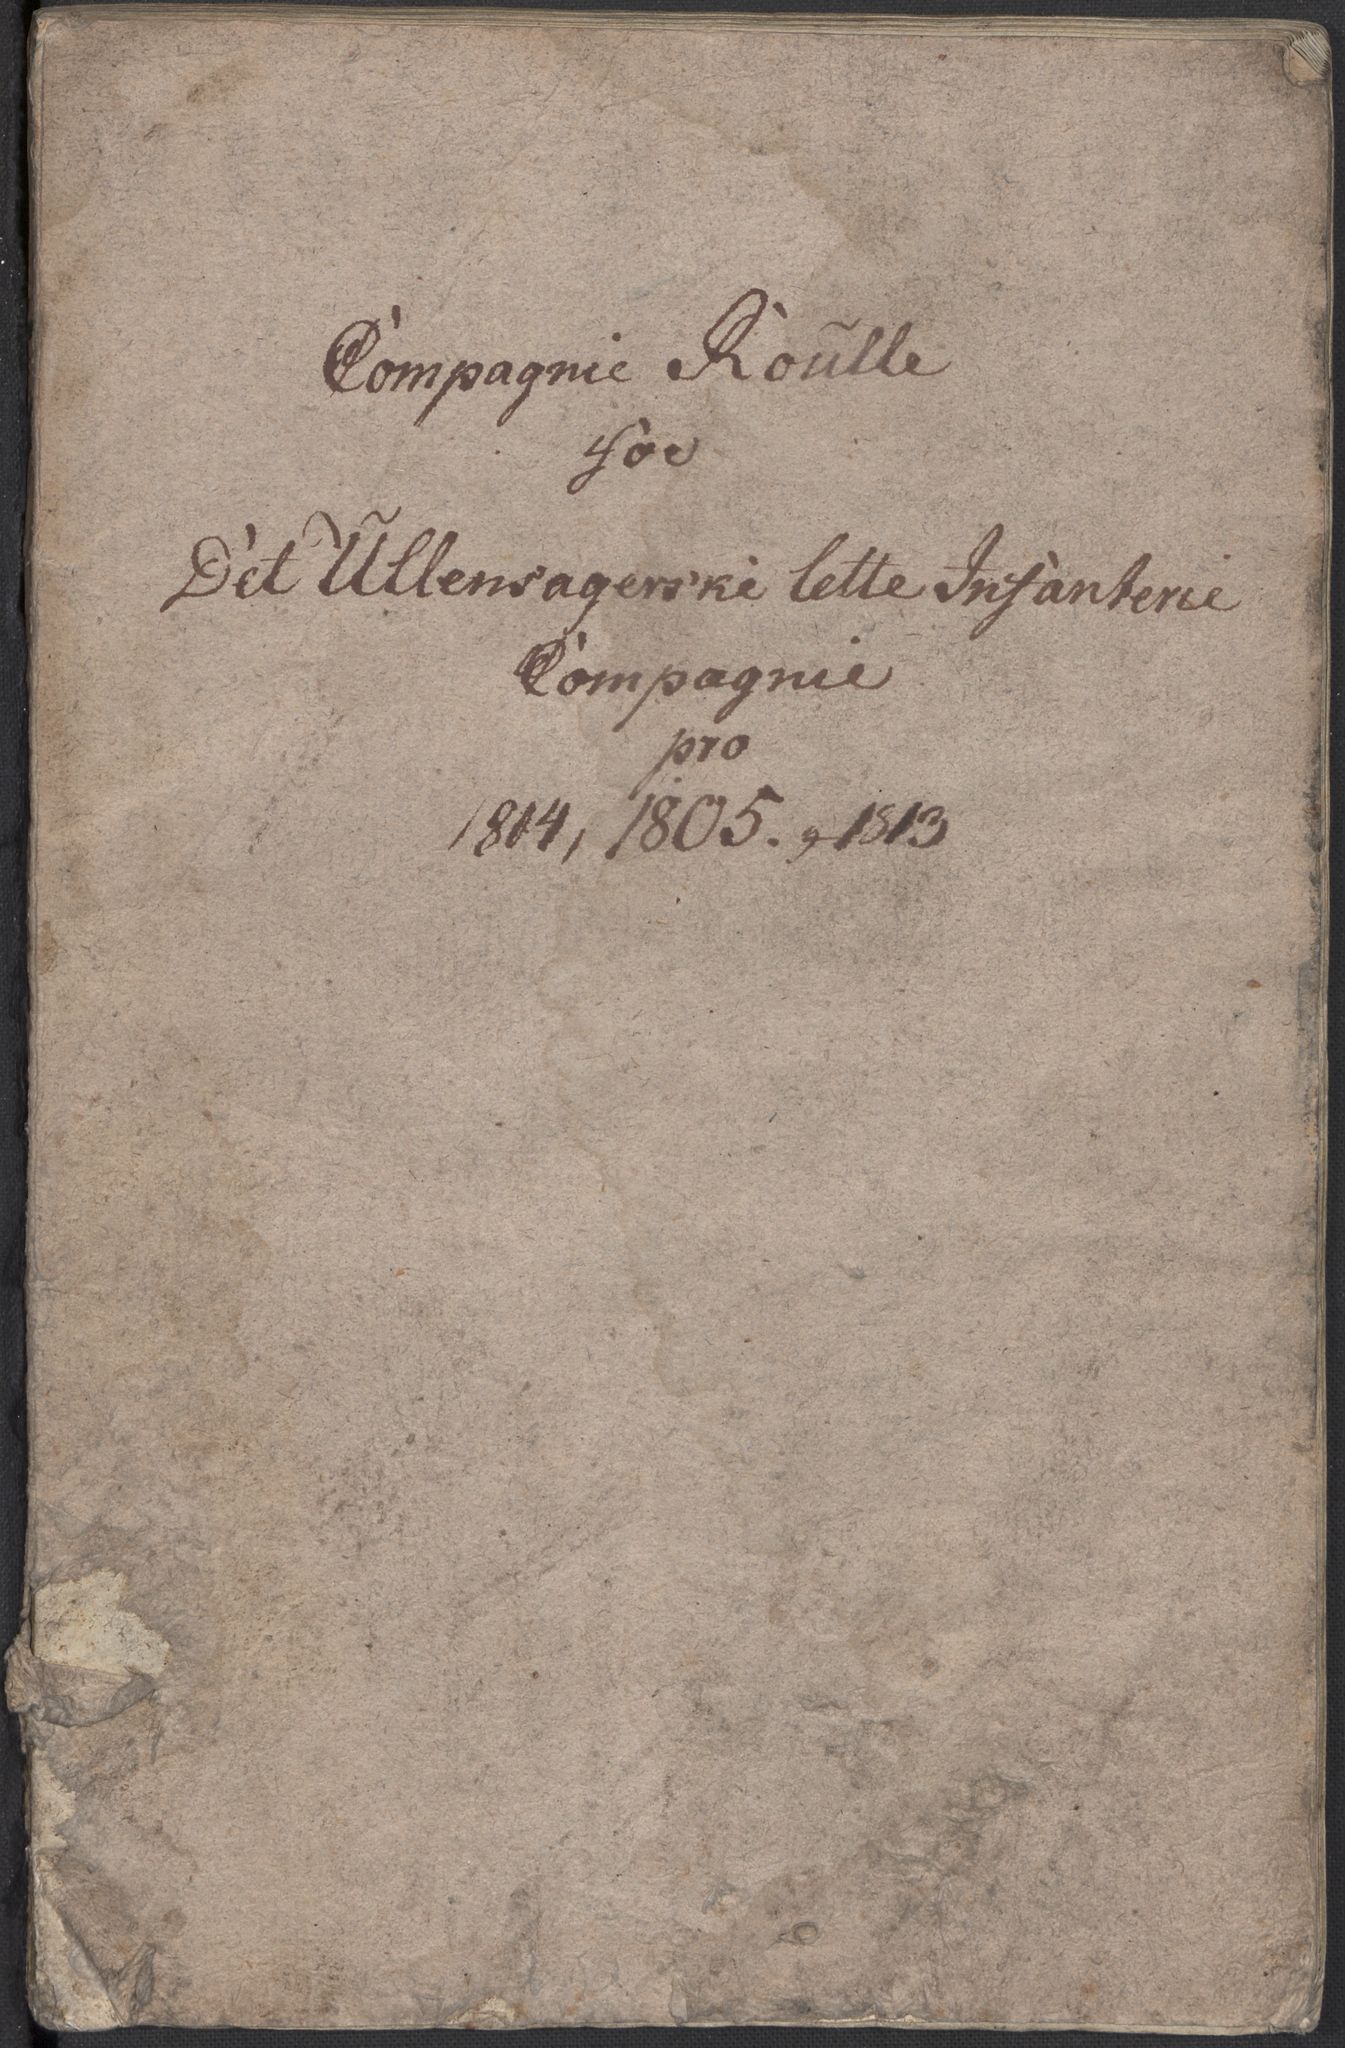 Compagnie Roulle
for
Det Ullensagerske lette Infanterie
Compagnie
pro
1814, 1805. 1813